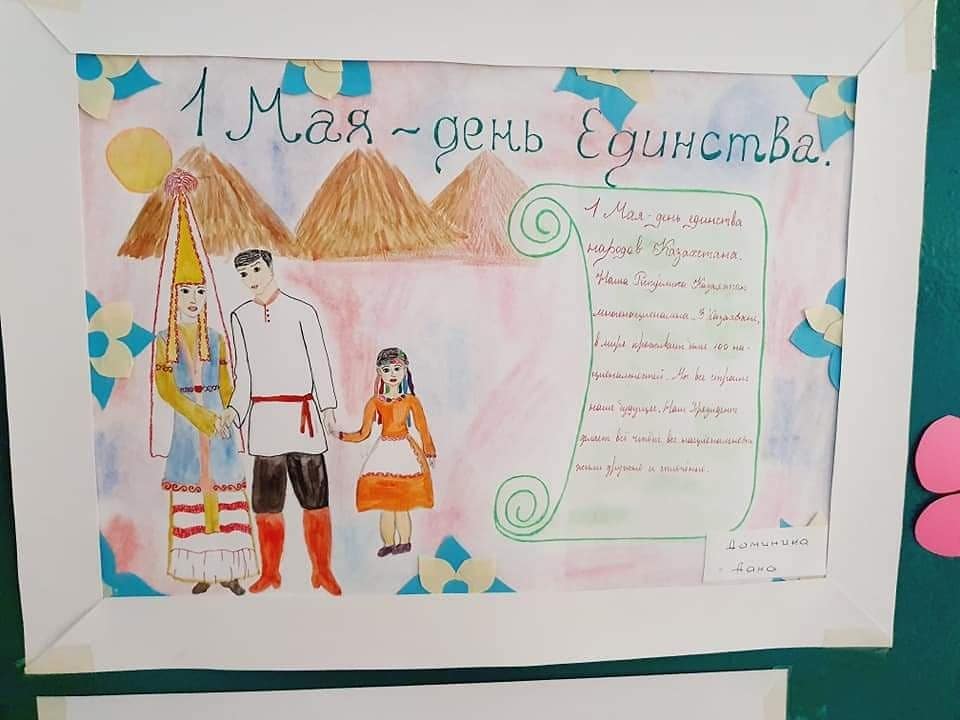 1 Мая ~ день Единства.
1 Мая - день единства
народов Казахстана.
Наша Республика Казахстан
многонациональна. В Казахстане,
в мире проживает более 100 на-
циональностей. Мы все строим
наше будущее. Наш Президент
делает всё чтобы все национальности
жили дружно и сплочённо.
Доминика
Дана